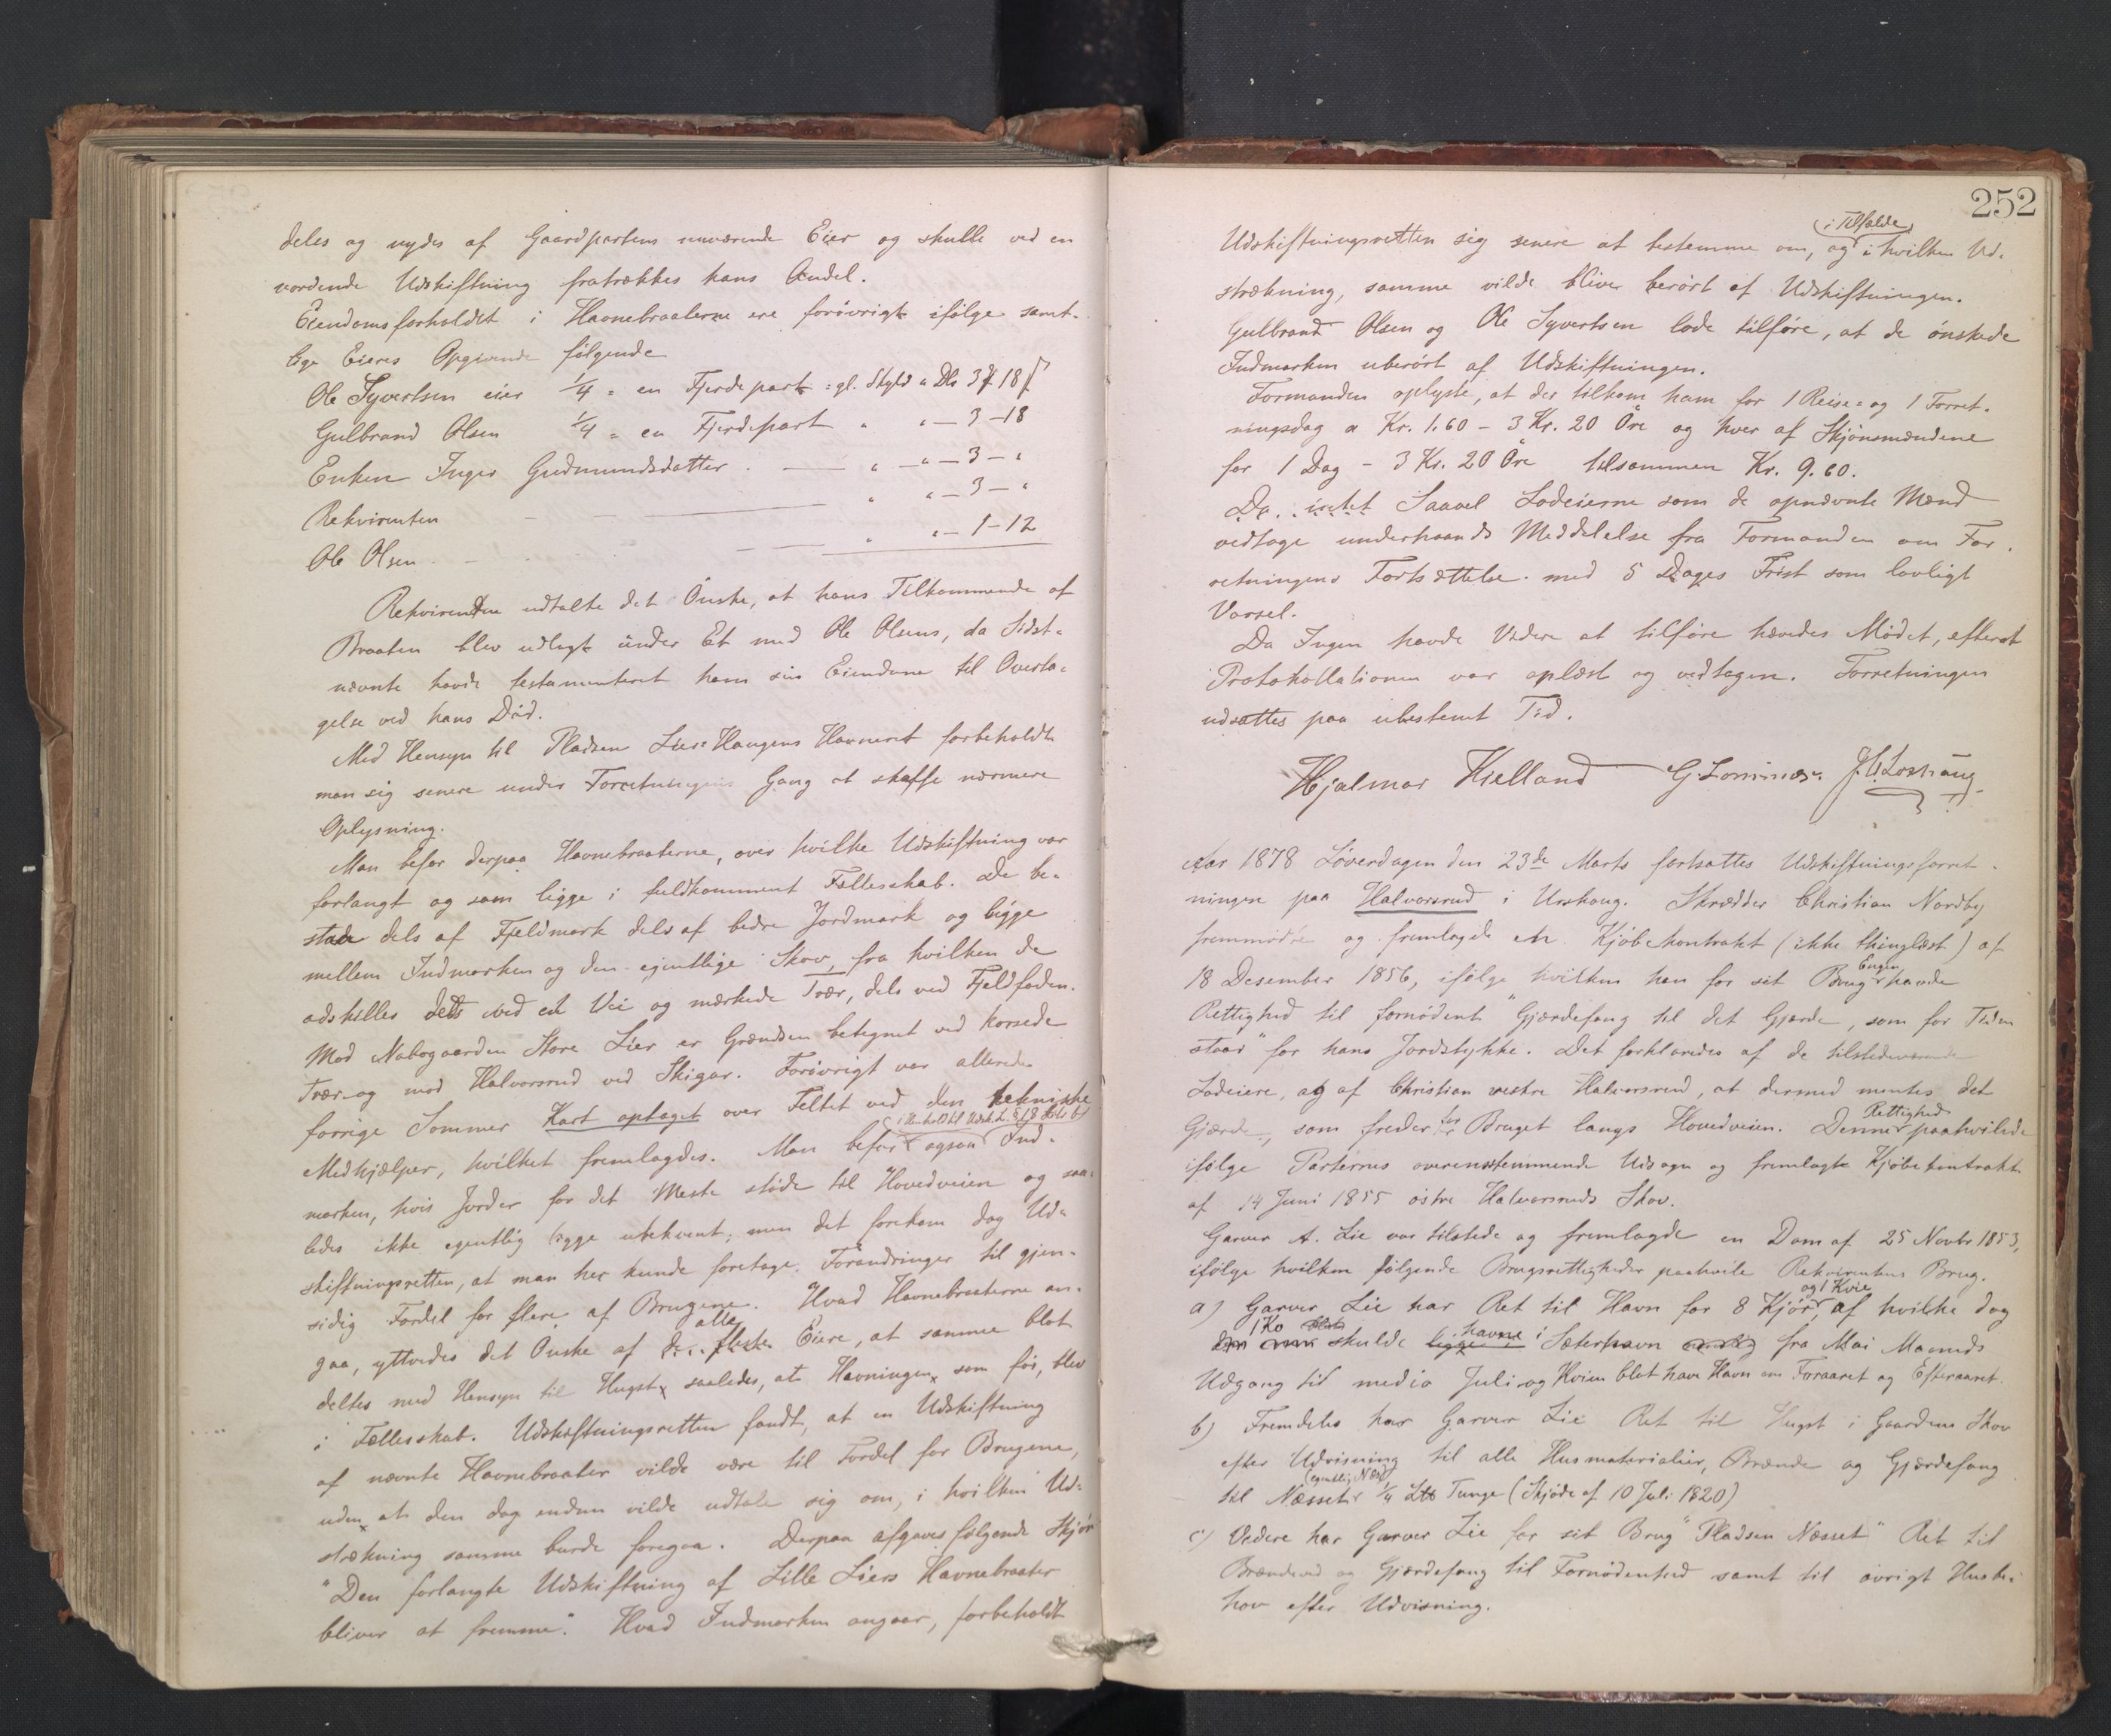 deles og nydes af Gaardpartens nuværende Eier og skulle ved en
vordende Udskiftning fratrækkes hans Andel.
Eiendomsforholdet i Havnebraaterne ere forøvrigt ifølge samt-
lige Eieres Opgivende følgende
Ole Syvertsen eier 1/4 = en Fjerdepart = gl. Skyld " Dlr 3 18
Gulbrand Olsen 1/4 = en Fjerdepart " " — 3 — 18
Enken Inger Gudmundsdatter . — " — " — 3 — "
Rekvirenten — " " — 3 — "
Ole Olsen — " " — 1 — 12
Rekvirenten udtalte det Ønske, at hans Tilkommende af
Braaten blev udlagt under Et med Ole Olsens, da Sidst-
nævnte havde testamenteret ham sin Eiendom til Overta-
gelse ved hans Død.
Med Hensyn til Pladsen Lier-Haugens Havneret forbeholdt
man sig senere under Forretningens Gang at skaffe nærmere
Oplysning.
Man befor derpaa Havnebraaterne, over hvilke Udskiftning var
forlangt og som ligge i fuldkomment Fællesskab. De be-
stode dels af Fjeldmark dels af bedre Jordmark og ligge
mellem Indmarken og den egentlige Skov, fra hvilken de
adskilles dels ved en Vei og mærkede Trær, dels ved Fjeldfoden.
Mod Nabogaarden Store Lier er Grændsen betegnet ved korsede
Trær og mod Halvorsrud ved Skigar. Forøvrigt var allerede
forrige Sommer Kart optaget over Feltet ved den tekniske
i Henhold til Udsk.L. § 18 Litr b)
Medhjælper, hvilket fremlagdes. Man befor ogsaa Ind-
marken, hvis Jorder for det Meste støde til Hovedveien og saa-
ledes ikke egentlig ligge ubekvemt; men det forekom dog Ud-
skiftningsretten, at man her kunde foretage Forandringer til gjen-
sidig Fordel for flere af Brugene. Hvad Havnebraaterne an-
alle
gaa, yttredes det Ønske af de fleste Eiere, at samme blot
deltes med Hensyn til Hugst, saaledes, at Havningen, som før, blev
i Fællesskab. Udskiftningsretten fandt, at en Udskiftning
af nævnte Havnebraater vilde være til Fordel for Brugene,
uden at den dog endnu vilde udtale sig om, i hvilken Ud-
strækning samme burde foregaa. Derpaa afgaves følgende Skjøn
"Den forlangte Udskiftning af Lille Liers Havnebraater
bliver at fremme". Hvad Indmarken angaar, forbeholdt
252
i Tilfælde
Udskiftningsretten sig senere at bestemme om, og i hvilken Ud-
strækning, samme vilde bliver berørt af Udskiftningen.
Gulbrand Olsen og Ole Syvertsen lode tilføre, at de ønskede
Indmarken uberørt af Udskiftningen.
Formanden oplyste, at der tilkom ham for 1 Reise- og 1 Forret-
ningsdag a Kr. 1.60 – 3 Kr. 20 Øre og hver af Skjønsmændene
for 1 Dag – 3 Kr. 20 Øre tilsammen Kr. 9.60.
Da intet Saavel Lodeierne som de opnævnte Mænd
vedtage underhaands Meddelelse fra Formanden om For-
retningens Fortsættelse med 5 Dages Frist som lovligt
Varsel.
Da Ingen havde Videre at tilføre hævedes Mødet, efterat
Protokollationen var oplæst og vedtagen. Forretningen
udsattes paa ubestemt Tid.
Hjalmar Kielland G. Lommes.
Aar 1878 Løverdagen den 23de Marts fortsattes Udskiftningsforret-
ningen paa Halvorsrud i Urskoug. Skrædder Christian Nordby
fremmødte og fremlagde en Kjøbekontrakt (ikke thinglæst) af
Engen
18 Desember 1856, ifølge hvilken han for sit Brug havde
Rettighed til fornødent "Gjærdefang til det Gjærde, som for Tiden
staar" for hans Jordstykke. Det forklaredes af de tilstedeværende
Lodeiere, og af Christian vestre Halvorsrud, at dermed mentes det
Rettighed
Gjærde, som freder for Bruget langs Hovedveien. Denne paahvilede
ifølge Parternes overensstemmende Udsagn og fremlagte Kjøbekontrakt
af 14 Juni 1855 østre Halvorsruds Skov.
Garver A. Lie var tilstede og fremlagde en Dom af 25 Novbr 1853,
ifølge hvilken følgende Brugsrettigheder paahvile Rekvirentens Brug.
og 1 Kvie
a) Garver Lie har Ret til Havn for 8 Kjør, af hvilke dog
1 Ko havne
skulde ligge i Sæterhavn fra Mai Maaneds
Udgang til medio Juli og Kvien blot have Havn om Foraaret og Efteraaret.
b) Fremdeles har Garver Lie Ret til Hugst i Gaardens Skov
efter Udvisning til alle Husmaterialier, Brænde og Gjærdefang
(egentlig Næs)
til Næsset 1/4 Ltb Tunge (Skjøde af 10 Juli 1820)
c) Videre har Garver Lie for sit Brug "Pladsen Næsset" Ret til
Brændeved og Gjærdefang til Fornødenhed samt til øvrigt Husbe-
hov efter Udvisning.